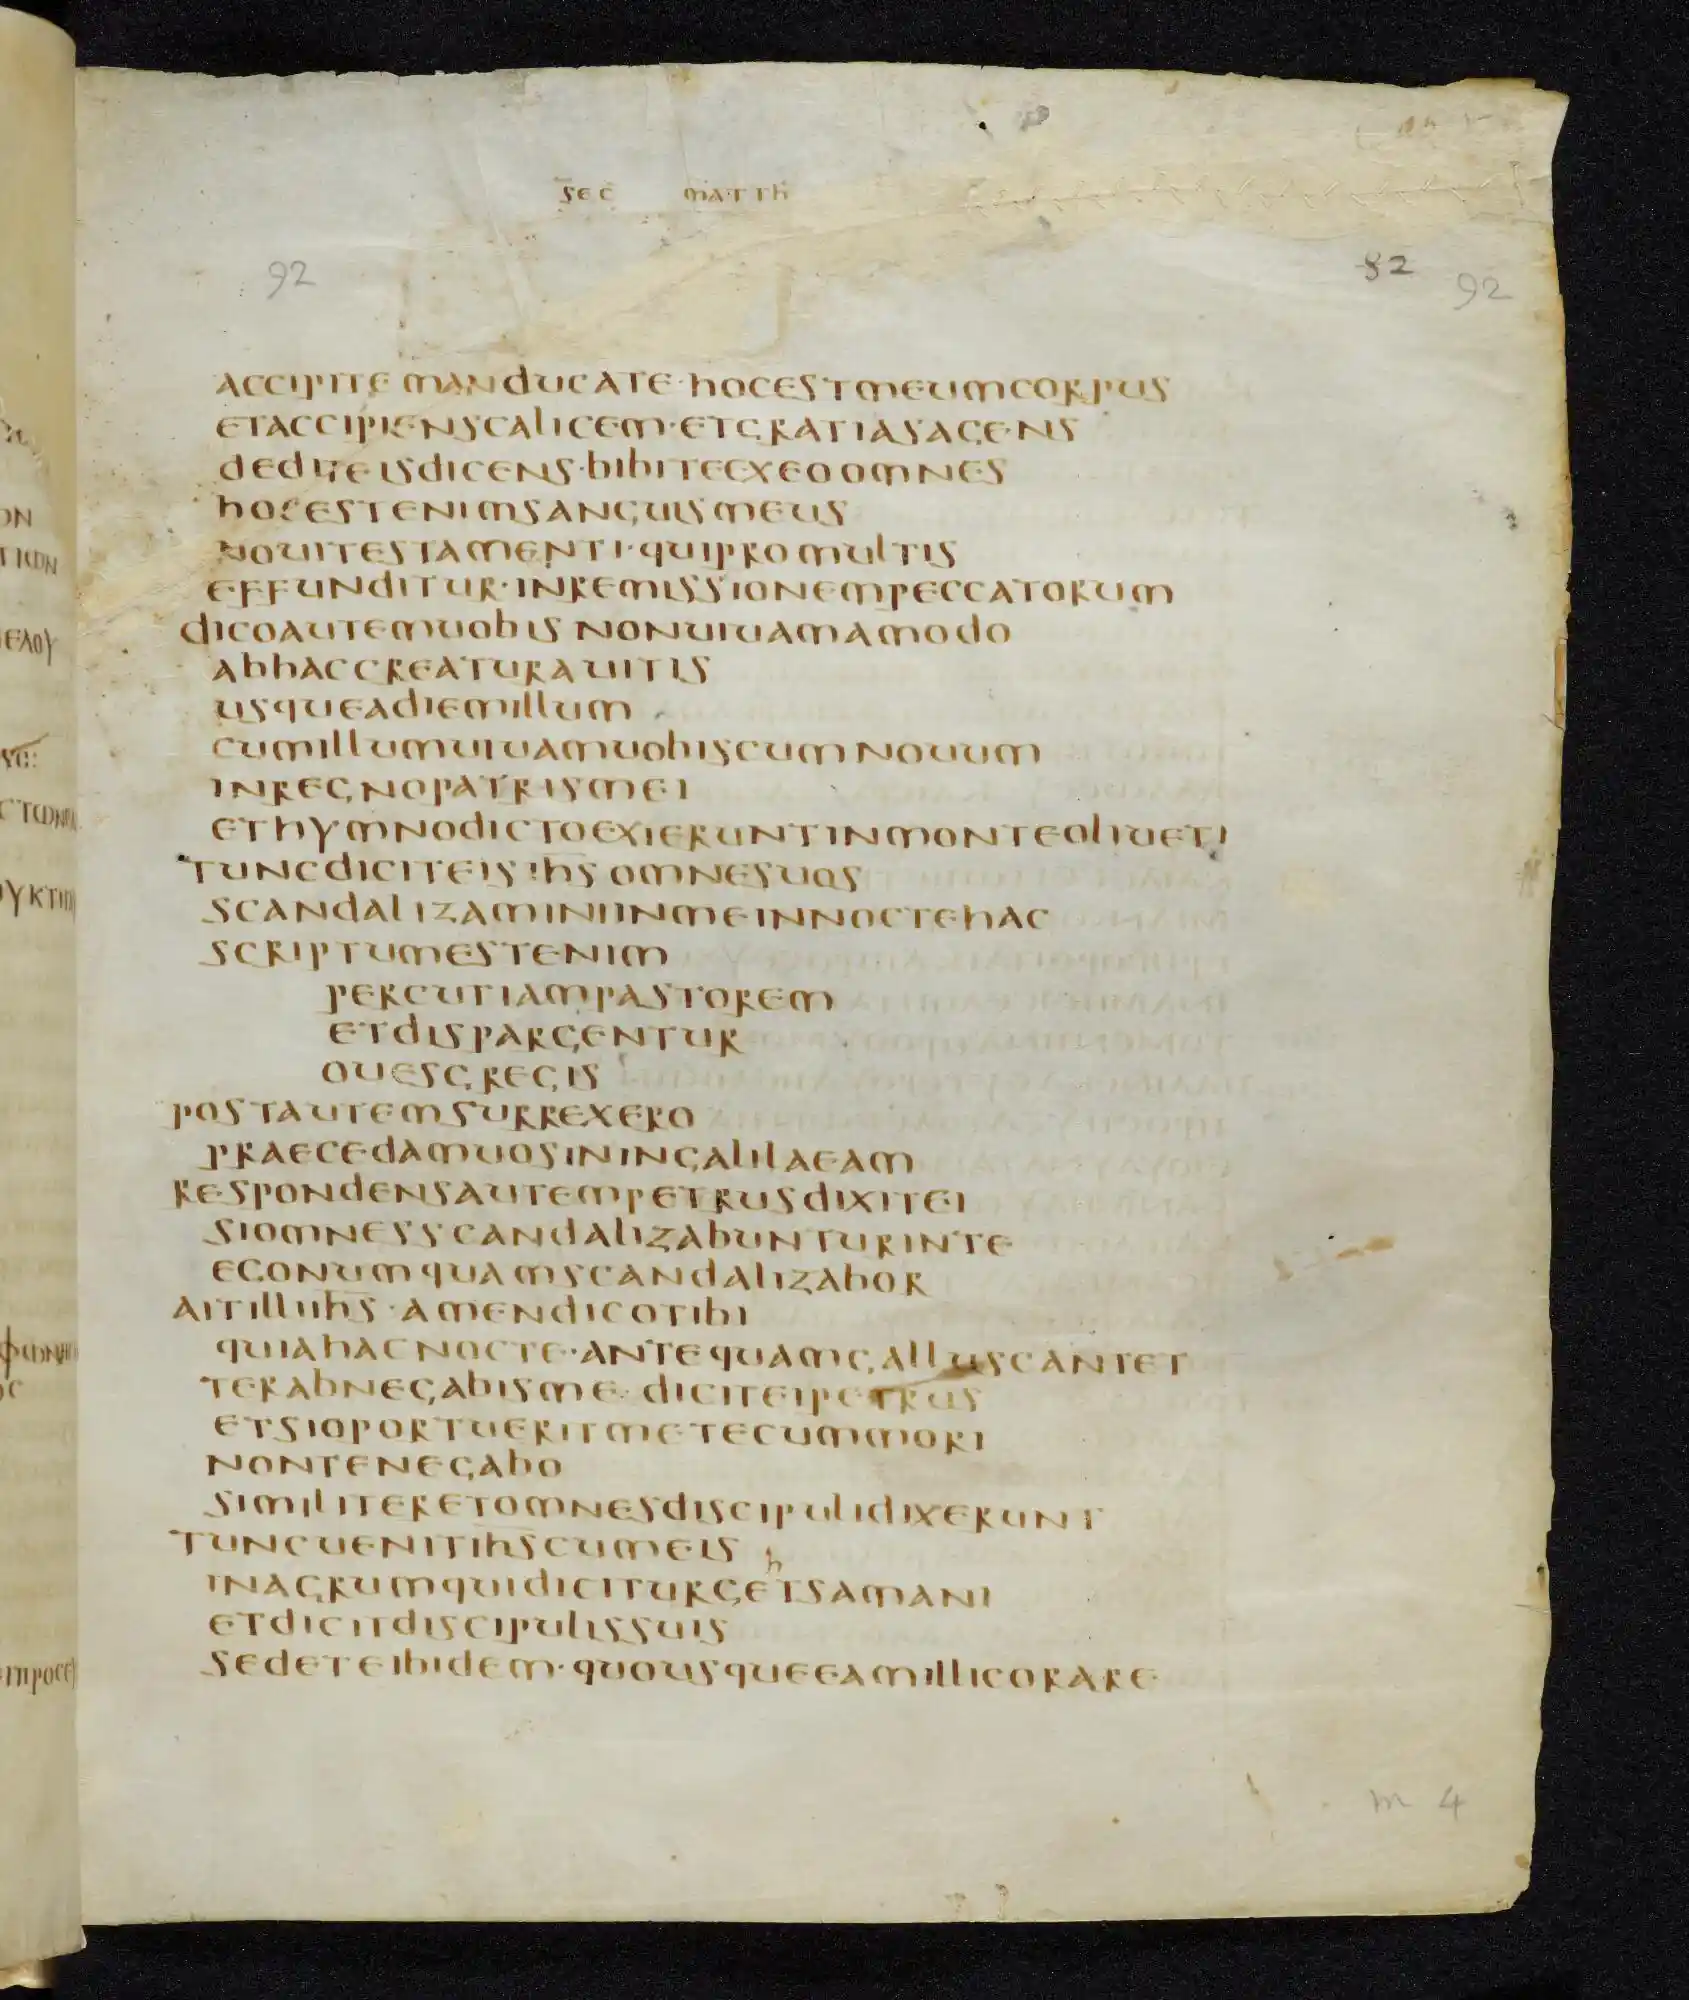 SEC MATTH
92 82 92
ACCIPITE MANDUCATE · HOCESTMEUMCORPUS
ETACCIPIENSCALICEM · ETGRATIASAGENS
DEDITEISDICENS · BIBITEEXEOOMNES
HOCESTENIMSANGUISMEUS
NOUITESTAMENTI · QUIPROMULTIS
EFFUNDITUR · INREMISSIONEMPECCATORUM
DICOAUTEMUOBIS NONUIUAMAMODO
ABHACCREATURAUITIS
USQUEADIEMILLUM
CUMILLUMUIUAMUOBISCUM NOUUM
INREGNOPATRISMEI
ETHYMNODICTOEXIERUNTINMONTEOLIUETI
TUNCDICITEIS IHS OMNESUOS
SCANDALIZAMINIINMEINNOCTEHAC
SCRIPTUMESTENIM
PERCUTIAMPASTOREM
ETDISPARGENTUR
OUESGREGIS
POSTAUTEMSURREXERO
PRAECEDAMUOSININGALILAEAM
RESPONDENSAUTEMPETRUSDIXITEI
SIOMNESSCANDALIZABUNTURINTE
EGONUMQUAMSCANDALIZABOR
AITILLIIHS · AMENDICOTIBI
QUIAHACNOCTE · ANTEQUAMGALLUSCANTET
TERABNEGABISME · DICITEIPETRUS
ETSIOPORTUERITMETECUMMORI
NONTENEGABO
SIMILITERETOMNESDISCIPULIDIXERUNT
TUNCUENITIHSCUMEIS
INAGRUMQUIDICITURGEhTSAMANI
ETDICITDISCIPULISSUIS
SEDETEIBIDEM · QUOUSQUEEAMILLICORARE
m 4